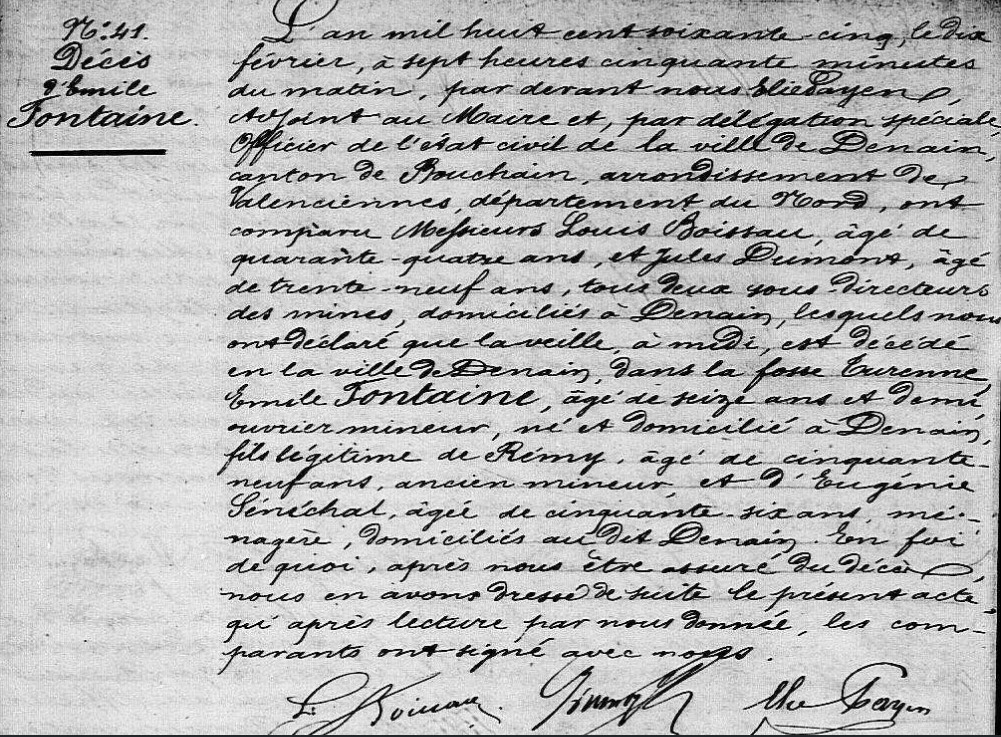 N.º 41.
Décès
d'Emile
Fontaine.
L'an mil huit cent soixante-cinq, le dix
février, à sept heures cinquante minutes
du matin, par devant nous Elie Payen,
Adjoint au Maire et, par délégation spéciale,
Officier de l'état civil de la ville de Denain,
canton de Bouchain, arrondissement de
Valenciennes, département du Nord, ont
comparu Messieurs Louis Boissau, âgé de
quarante-quatre ans, et Jules Dumont, âgé
de trente-neuf ans, tous deux sous-directeurs
des mines, domiciliés à Denain, lesquels nous
ont déclaré que la veille, à midi, est décédé
en la ville de Denain, dans la fosse Turenne,
Emile Fontaine, âgé de seize ans et demi
ouvrier mineur, né et domicilié à Denain,
fils légitime de Rémy, âgé de cinquante-
neuf ans, ancien mineur, et d'Eugénie
Sénéchal, âgée de cinquante-six ans, mé-
nagère, domiciliés au dit Denain. En foi
de quoi, après nous être assuré du décès,
nous en avons dressé de suite le présent acte,
qu'après lecture par nous donnée, les com-
parants ont signé avec nous.
Elie Payen